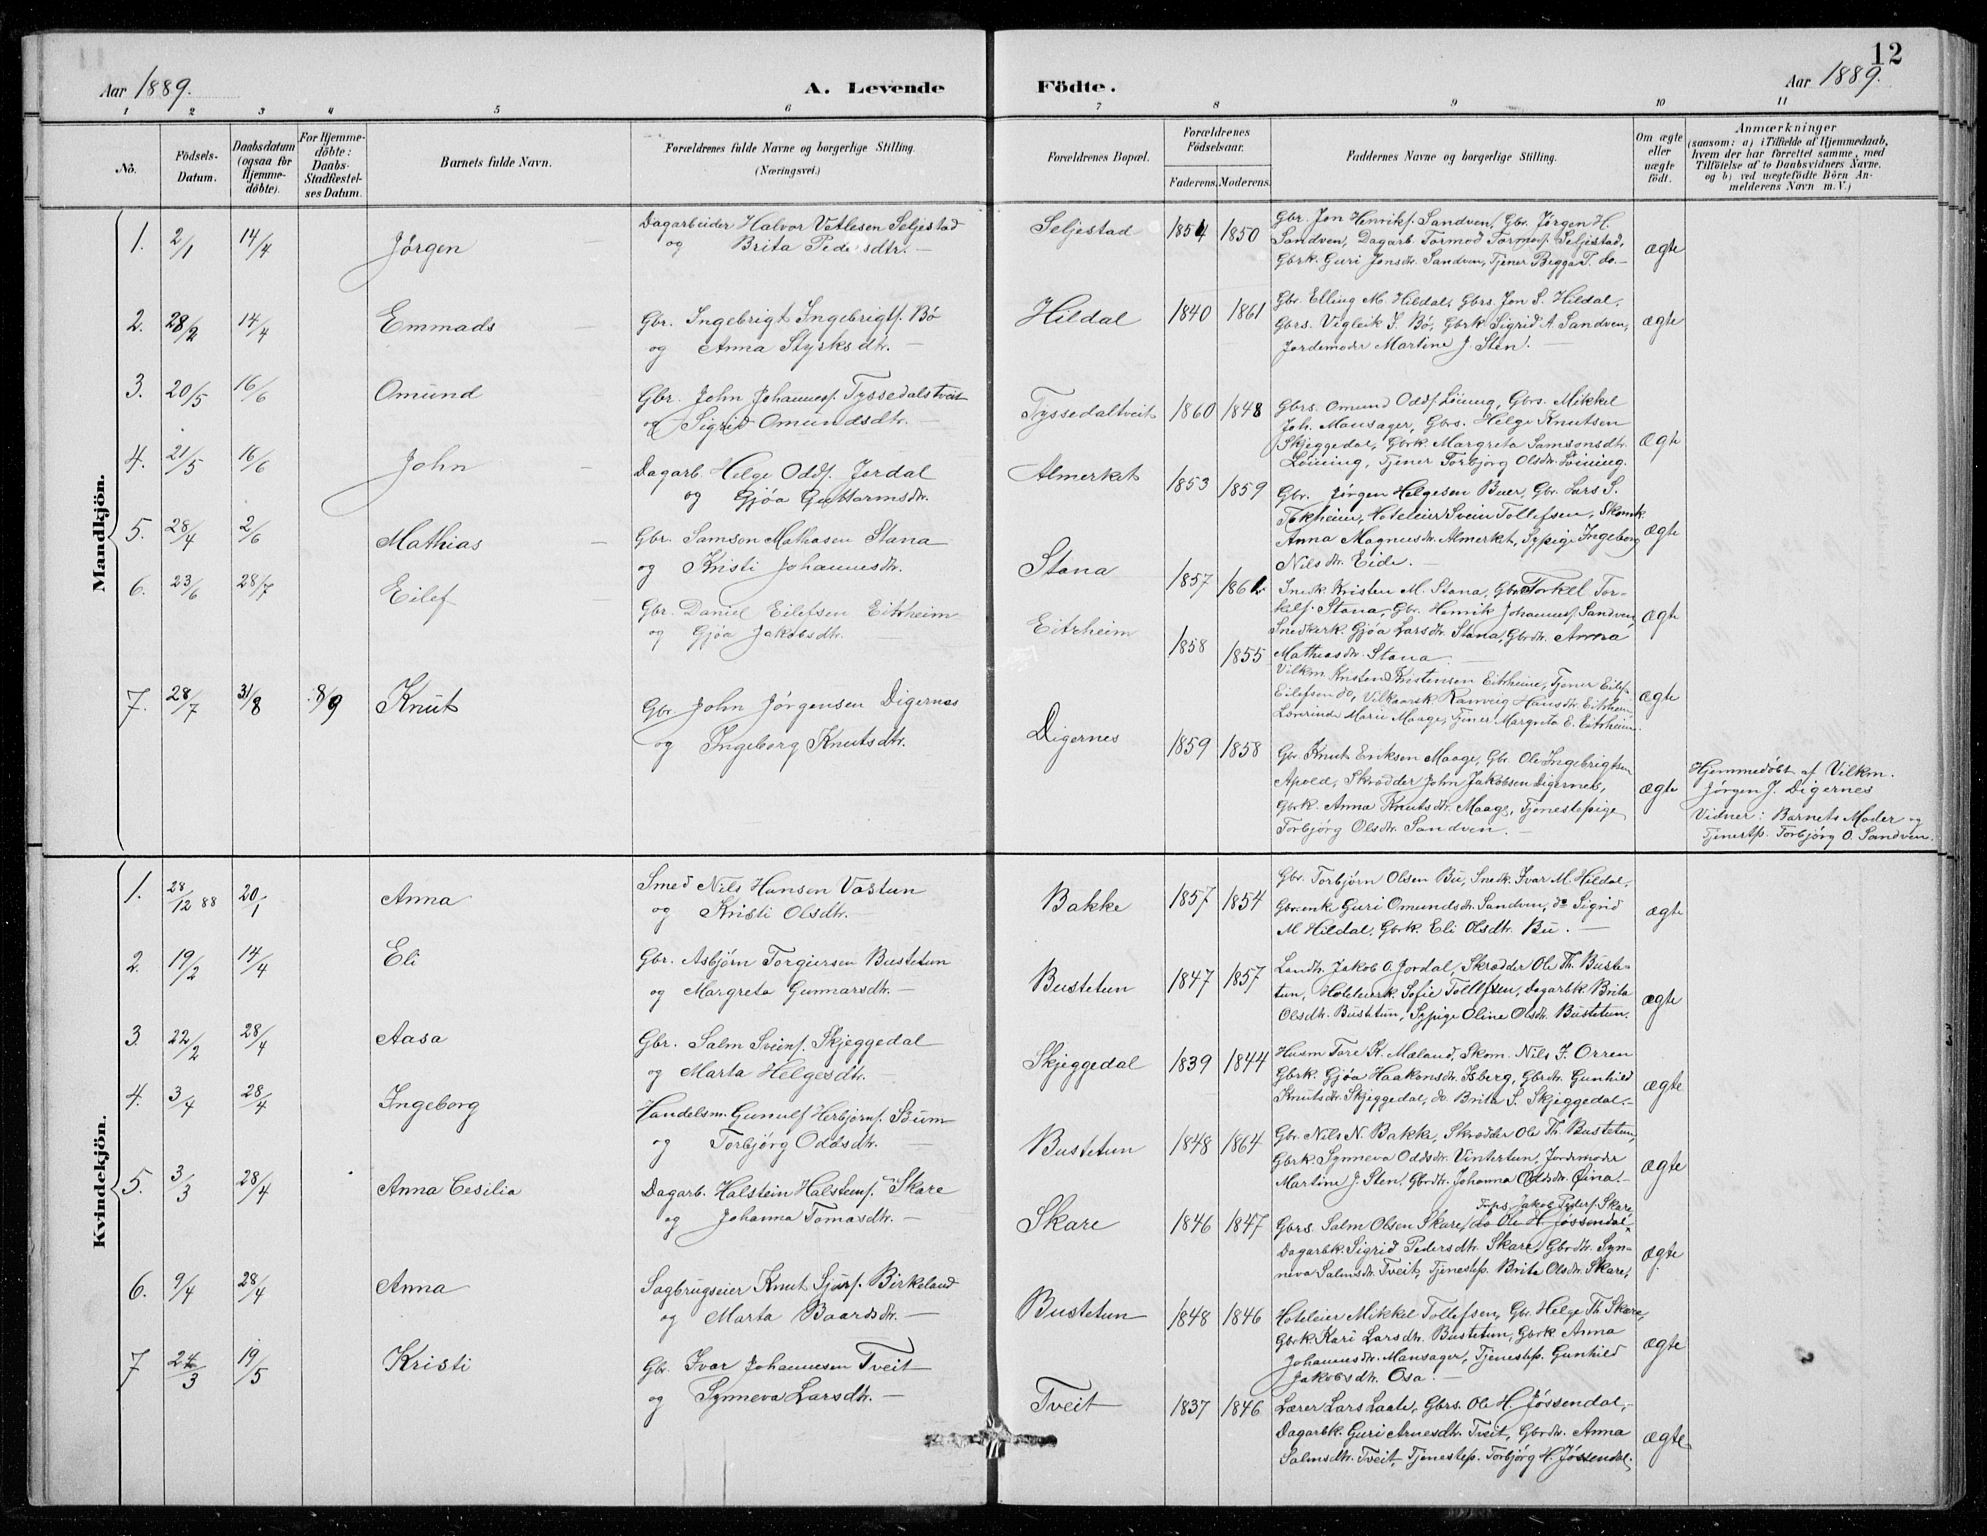 12
Aar 1889.
A. Levende Födte.
Aar 1889.
1 2 3 4 5 6 7 8 9 10 11
No.
Födsels-Datum.
Daabsdatum (ogsaa for Hjemme-döbte).
For Hjemme-döbte: Daabs-Stadfæstel-ses Datum.
Barnets fulde Navn.
Forældrenes fulde Navne og borgerlige Stilling. (Næringsvei.)
Forældrenes Bopæl.
Forældrenes Födselsaar.
Faderens. Moderens.
Faddernes Navne og borgerlige Stilling.
Om ægte eller uægte födt.
Anmærkninger
(saasom: a) i Tilfælde af Hjemmedaab,
hvem der har forrettet samme, med
Tilföielse af to Daabsvidners Navne,
og b) ved uægtefödte Börn An-
melderens Navn m. V.)
Mandkjön.
1. 2/1 14/4 Jørgen
Dagarbeider Halvor Vetlesen Seljestad
og Brita Pedersdtr. —
Seljestad 1851 1850
Gbr. Jon Henriks. Sandven, Gbr. Jörgen H.
Sandven, Dagarb. Tormod Tormods. Seljestad,
Gbrk. Guri Jonsdtr. Sandven, Tjener Begga T. do. —
ægte
2. 28/2 14/4 Emmads
Gbr. Ingebrigt Ingebrigts. Bö
og Anna Styrksdtr. —
Hildal 1840 1861
Gbr. Elling M. Hildal, Gbrs. Jon S. Hildal,
Gbrs. Vigleik I. Bö, Gbrk Sigrid A. Sandven,
Jordemoder Martine J. Sten. —
ægte
3. 20/5 16/6 Omund
Gbr. John Johannes. Tyssedalstveit
og Sigrid Omundsdtr. —
Tyssedaltveit 1860 1848
Gbrs. Omund Odds. Löining, Gbrs. Mikkel
Joh. Mansager, Gbrs. Helge Knutsen
Skjeggedal, Gbrk. Margreta Samsonsdtr.
Löining, Tjener Torbjörg Olsdtr.
ægte
4. 21/5 16/6 John
Dagarb. Helge Odds. Jordal
og Gjöa Guttormsdtr.
Almerket 1853 1859
Gbr. Jörgen Helgesen Buer, Gbr. Lars S.
Tokheim, Hoteleier Svein Tollefsen, Skomk.
Anna Magnusdtr. Almerket, Sypige Ingeborg
Nilsdtr. Eide. —
ægte
5. 28/4 2/6 Mathias
Gbr. Samson Mathasen Stana
og Kristi Johannesdtr.
Stana 1857
Snedk. Kristen M. Stana, Gbr. Torkel Tor-
kels. Stana, Gbr. Henrik Johannes. Sandven,
Snedkerk. Gjöa Larsdtr. Stana, Gbrdtr. Anna
Mathiasdtr. Stana. —
ægte
6. 23/6 28/7 Eilef
Gbr. Daniel Eilefsen Eitrheim
og Gjöa Jakobsdtr. —
Eitrheim 1858 1855
Vilkm. Kristen Kristensen Eitrheim, Tjener Eilef
Eilefsen do, Vilkaarsk Ranveig Hansdtr. Eitrheim
Lærerinde Marie Maage, Tjener Margreta E. Eitrheim.
ægte
7. 28/7 31/8 8/9 Knut
Gbr. John Jörgensen Digernes
og Ingeborg Knutsdtr.
Digernes 1859 1858
Gbr. Knut Eriksen Maage, Gbr. Ole Ingebrigtsen
Apold, Skrædder John Jakobsen Digernes,
Gbrk. Anna Knutsdtr. Maage, Tjenestepige
Torbjörg Olsdtr. Sandven. —
ægte
Hjemmedöbt af Vilkm.
Jörgen J. Digernes
Vidner: Barnets Moder og
Tjenestp. Torbjörg O. Sandven.
Kvindekjön.
1. 28/12 88 20/1 Anna
Smed Nils Hansen Vastun
og Kristi Olsdtr. —
Bakke 1857 1854
Gbr. Torbjörn Olsen Bu, Snedk. Ivar M. Hildal,
Gbr.enke Guri Omundsdtr. Sandven, do Sigrid
M. Hildal, Gbrk. Eli Olsdtr. Bu. —
ægte
2. 19/2 14/4 Eli
Gbr. Asbjörn Torgiersen Bustetun
og Margreta Gunnarsdtr. —
Bustetun 1847 1857
Landh. Jakob O. Jordal, Skrædder Ole Th. Buste-
tun, Hoteleierk. Sofie Tollefsen, Dagarbk Brita
Olsdtr. Bustetun, Sypige Oline Olsdtr. Bustetun.
ægte
3. 22/2 28/4 Aasa
Gbr. Salm Sveins. Skjeggedal
og Marta Helgesdtr. —
Skjeggedal 1839 1844
Husm Tore K. Mæland, Skom. Nils J. Orren
Gbrk. Gjöa Haakonsdtr. Isberg, Gbrdtr. Gunhild
Knutsdtr. Skjeggedal, do. Brita S. Skjeggedal. —
ægte
4. 3/4 28/4 Ingeborg
Handelsm. Gunulf Herbjörns. Bum
og Torbjörg Oddsdtr. —
Bustetun 1848 1864
Gbr. Nils N. Bakke, Skrædder Ole Th. Bustetun,
Gbrk. Synneva Oddsdtr. Vintertun, Jordemoder
Martine J. Sten, Gbrdtr. Johanna Oddsdtr. Öina. —
ægte
5. 3/3 28/4 Anna Cesilia
Dagarb. Halstein Halsteins. Skare
og Johanna Tomasdtr. —
Skare 1846 1847
Jakob Peders. Skare
Gbrs. Salm Olsen Skare, do Ole H. Jössendal
Dagarbk. Sigrid Pedersdtr. Skare, Gbrdtr. Syn-
neva Salmsdtr. Tveit, Tjenestep. Brita Olsdtr. Skare.
ægte
6. 9/4 28/4 Anna
Sagbrugseier Knut Sjurs. Birkeland
og Marta Baardsdtr. —
Bustetun 1848 1846
Hoteleier Mikkel Tollefsen, Gbr. Helge Th. Skare,
Gbrk. Kari Larsdtr. Bustetun, Gbrk. Anna
Johannesdtr. Mansager, Tjenestep. Gunhild
Jakobsdtr. Osa. —
ægte
7 24/3 19/5 Kristi
Gbr. Ivar Johannesen Tveit
og Synneva Larsdtr. —
Tveit 1837 1846
Lærer Lars Laate, Gbrs. Ole H. Jössendal, —
Dagarbk. Guri Arnesdtr. Tveit, Gbrdtr. Anna
Salmsdtr. Tveit, Tjenestep. Torbjörg H. Jössendal.
ægte